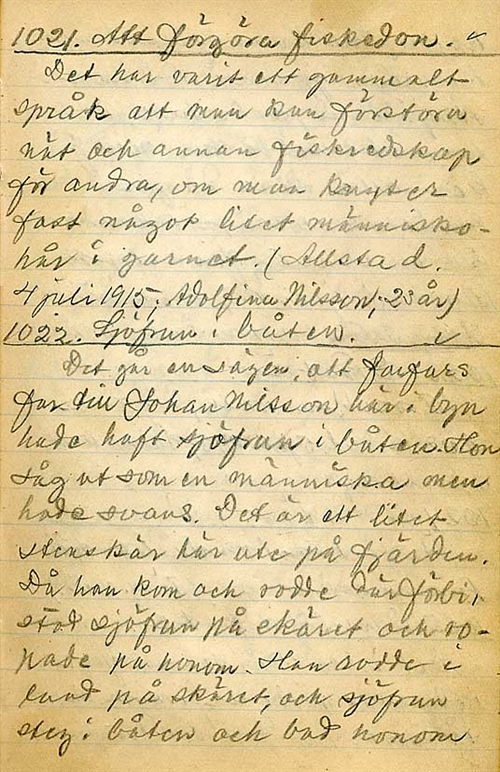 1021. Att förgöra fiskedon. ✓
Det har varit ett gammalt
språk att man kan förstöra
nät och annan fiskredskap
för andra, om man knyter
fast något litet människo-
hår i garnet. (Allsta d.
4 juli 1915, Adolfina Nilsson, 23 år)
1022. Sjöfrun i båten. ✓
Det går en sägen, att farfars
far till Johan Nilsson här i byn
hade haft sjöfrun i båten. Hon
såg ut som en människa men
hade svans. Det är ett litet
stenskär här ute på fjärden.
Då han kom och rodde där förbi,
stod sjöfrun på skäret och ro-
pade på honom. Han rodde i
land på skäret, och sjöfrun
steg i båten och bad honom